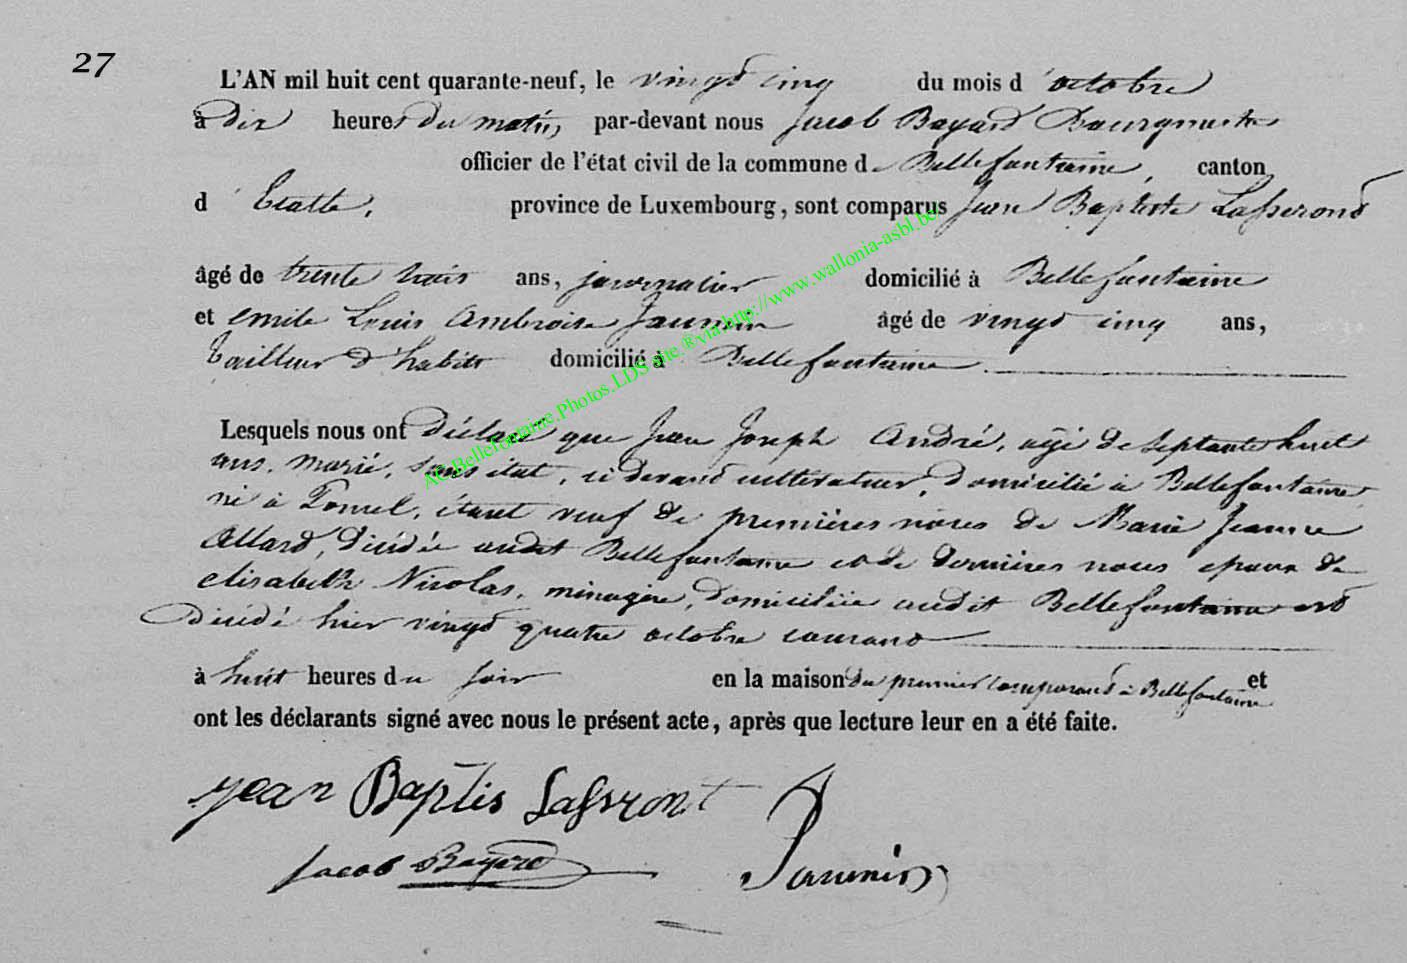 27
L'AN mil huit cent quarante-neuf, le vingt cinq du mois d'octobre
à dix heures du matin, par-devant nous Jacob Bayard Bourgmestre
officier de l'état civil de la commune de Bellefontaine, canton
d'Etalle, province de Luxembourg, sont comparus Jean Baptiste Lasseront
âgé de trente trois ans, journalier domicilié à Bellefontaine
et emile Louis Ambroise Jaumin âgé de vingt cinq ans,
tailleur d'habits domicilié à Bellefontaine
Lesquels nous ont déclaré que Jean Joseph André, agé de septante huit
ans, marié, sans état, ci devant cultivateur, domicilié à Bellefontaine
né à , étant veuf de premières noces de Marie Jeanne
Allard, décédée audit Bellefontaine et de dernières noces epoux de
elisabeth Nicolas, ménagère, domiciliée audit Bellefontaine est
Décédé hier vingt quatre octobre courant
à huit heures du soir en la maison du premier comparant à Bellefontaine et
ont les déclarants signé avec nous le présent acte, après que lecture leur en a été faite.
jean Baptis Lassront
Jacob Bayard Jaumin
AC.Bellefontaine.Photos.LDS site ® via http://www.wallonia-asbl.be/